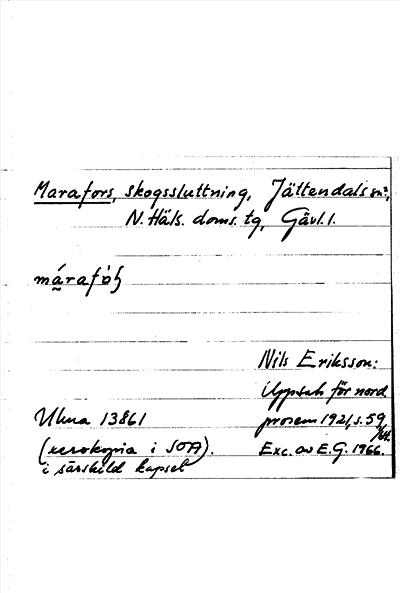 Marafors, skogssluttning, Jättendals sn,
N. Häls. doms. tg, Gävl. l.
márafòʂ
Nils Eriksson:
Uppsats för nord.
Uluma 13861 prosem 1921, s. 59
/64.
(xerokopia i SOA). Exc. av E.G. 1966.
i särskild kapsel